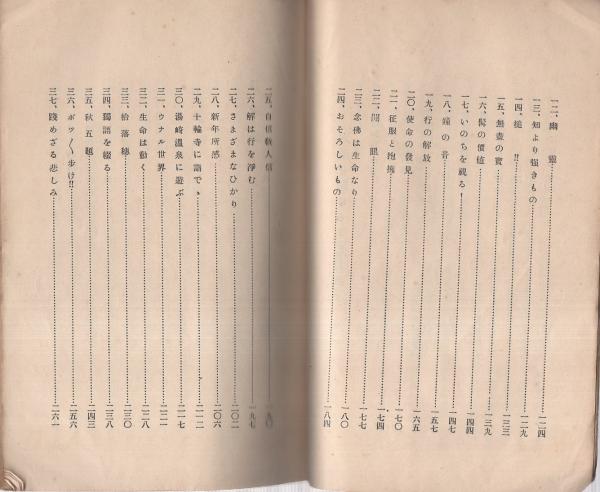 一二、幽靈……一二四
一三、知より强きもの……一二九
一四、槌!!……一三三
一五、無盡の寶……一三九
一六、髯の價値……一四四
一七、いのちを視る!……一四七
一八、鐘の音……一五七
一九、行の解放……一六五
二〇、使命の發見……一七〇
二一、征服と抱擁……一七四
二二、開眼……一七七
二三、念佛は生命なり……一八〇
二四、おそろしいもの……一八四
二五、自信敎人信……一九〇
二六、解は行を淨む……一九七
二七、さまざまなひかり……二〇二
二八、新年所感……二〇六
二九、十輪寺に詣でゝ……二一二
三〇、湯崎溫泉に遊ぶ……二一七
三一、ウナル世界……二二一
三二、生命は動く……二二八
三三、拾落穗……二三〇
三四、獨語を綴る……二三八
三五、秋五題……二四三
三六、ボツ〱步け!!……二五六
三七、踐めざる悲しみ……二六一